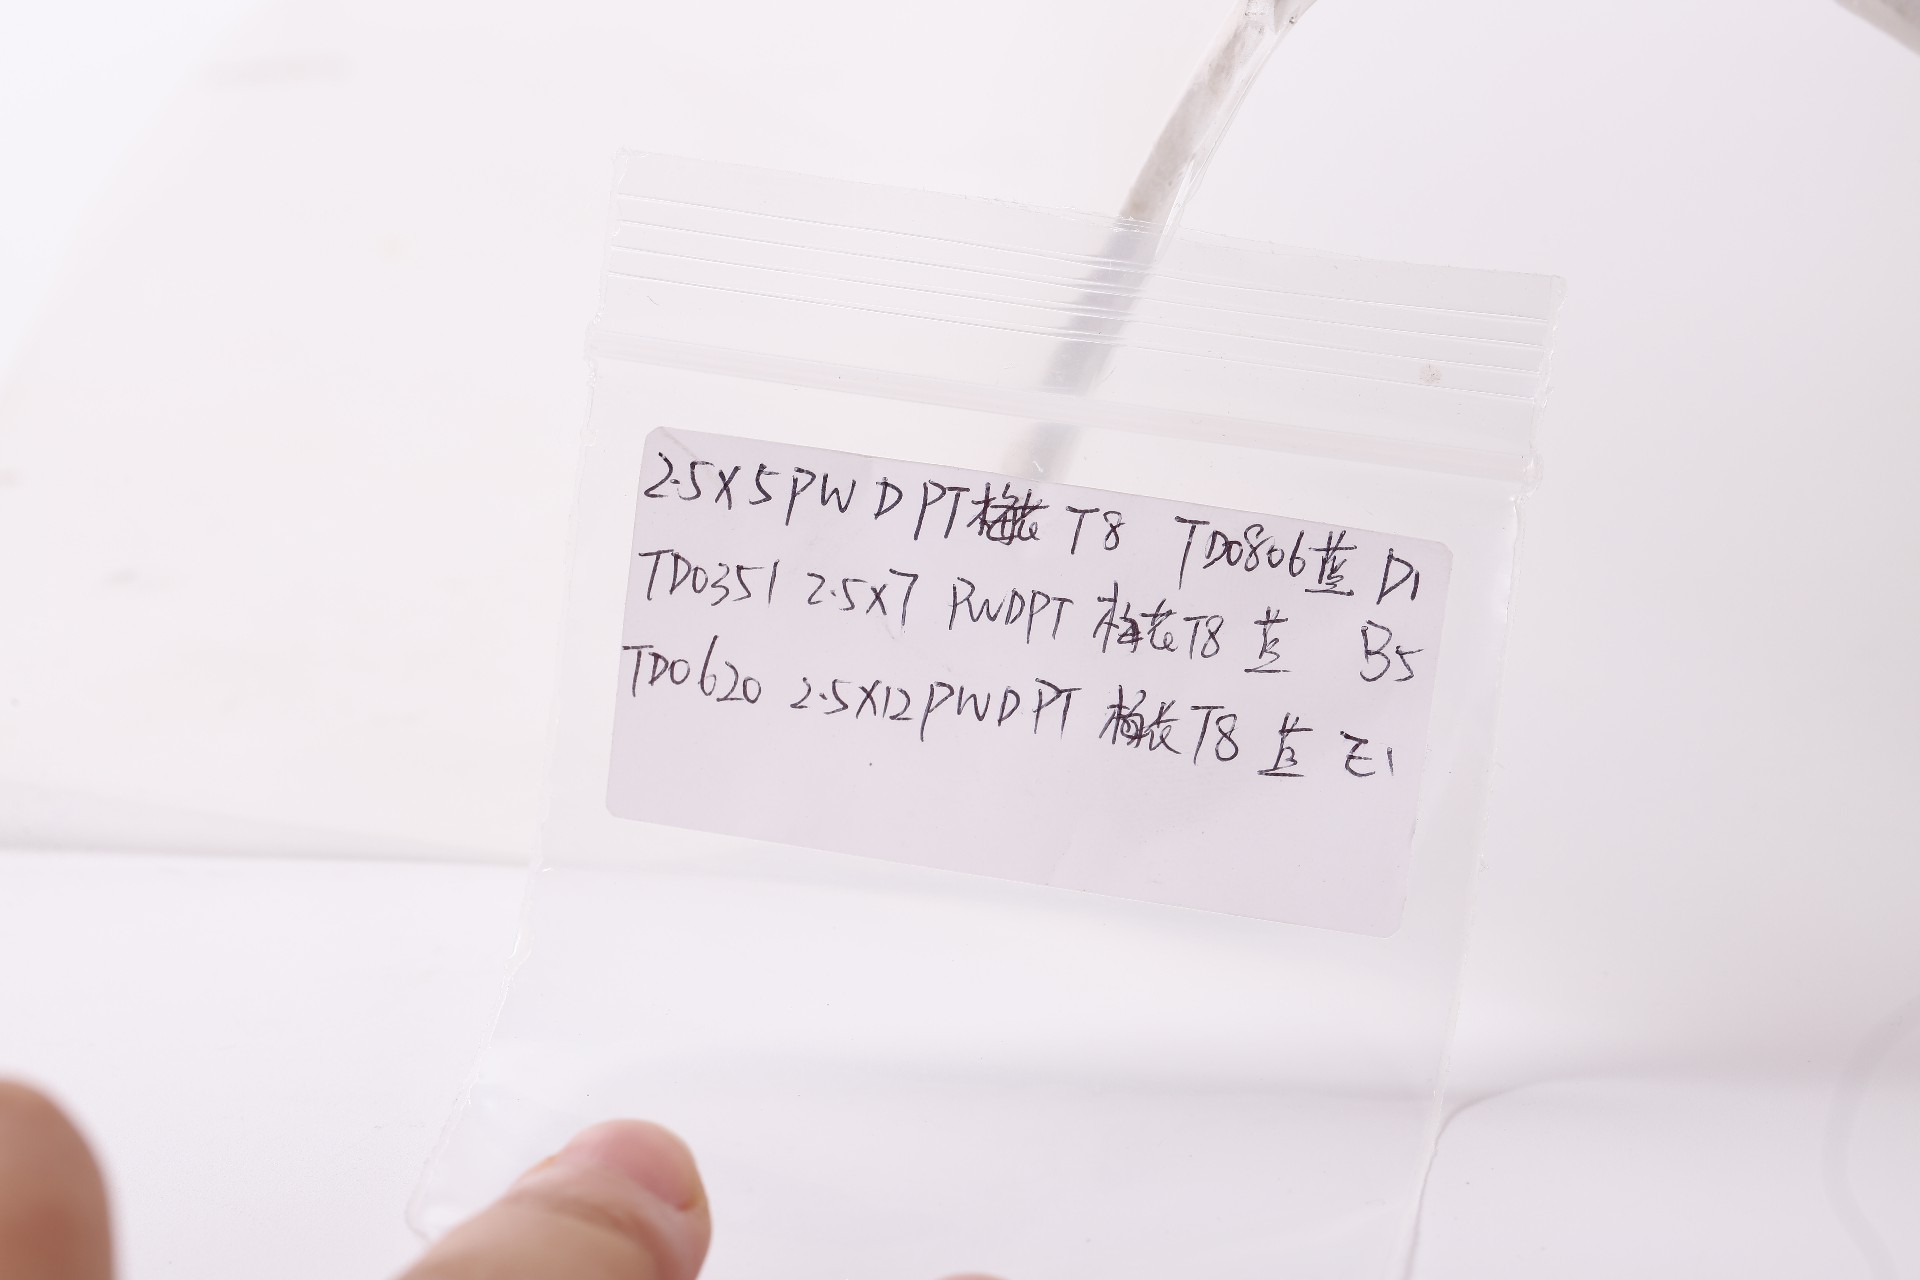 2.5X5PWDPT梅花T8 TD0806蓝 D1
TD0351 2.5X7 PWDPT 梅花T8 蓝 B5
TD0620 2.5X12PWDPT 梅花T8 蓝 E1